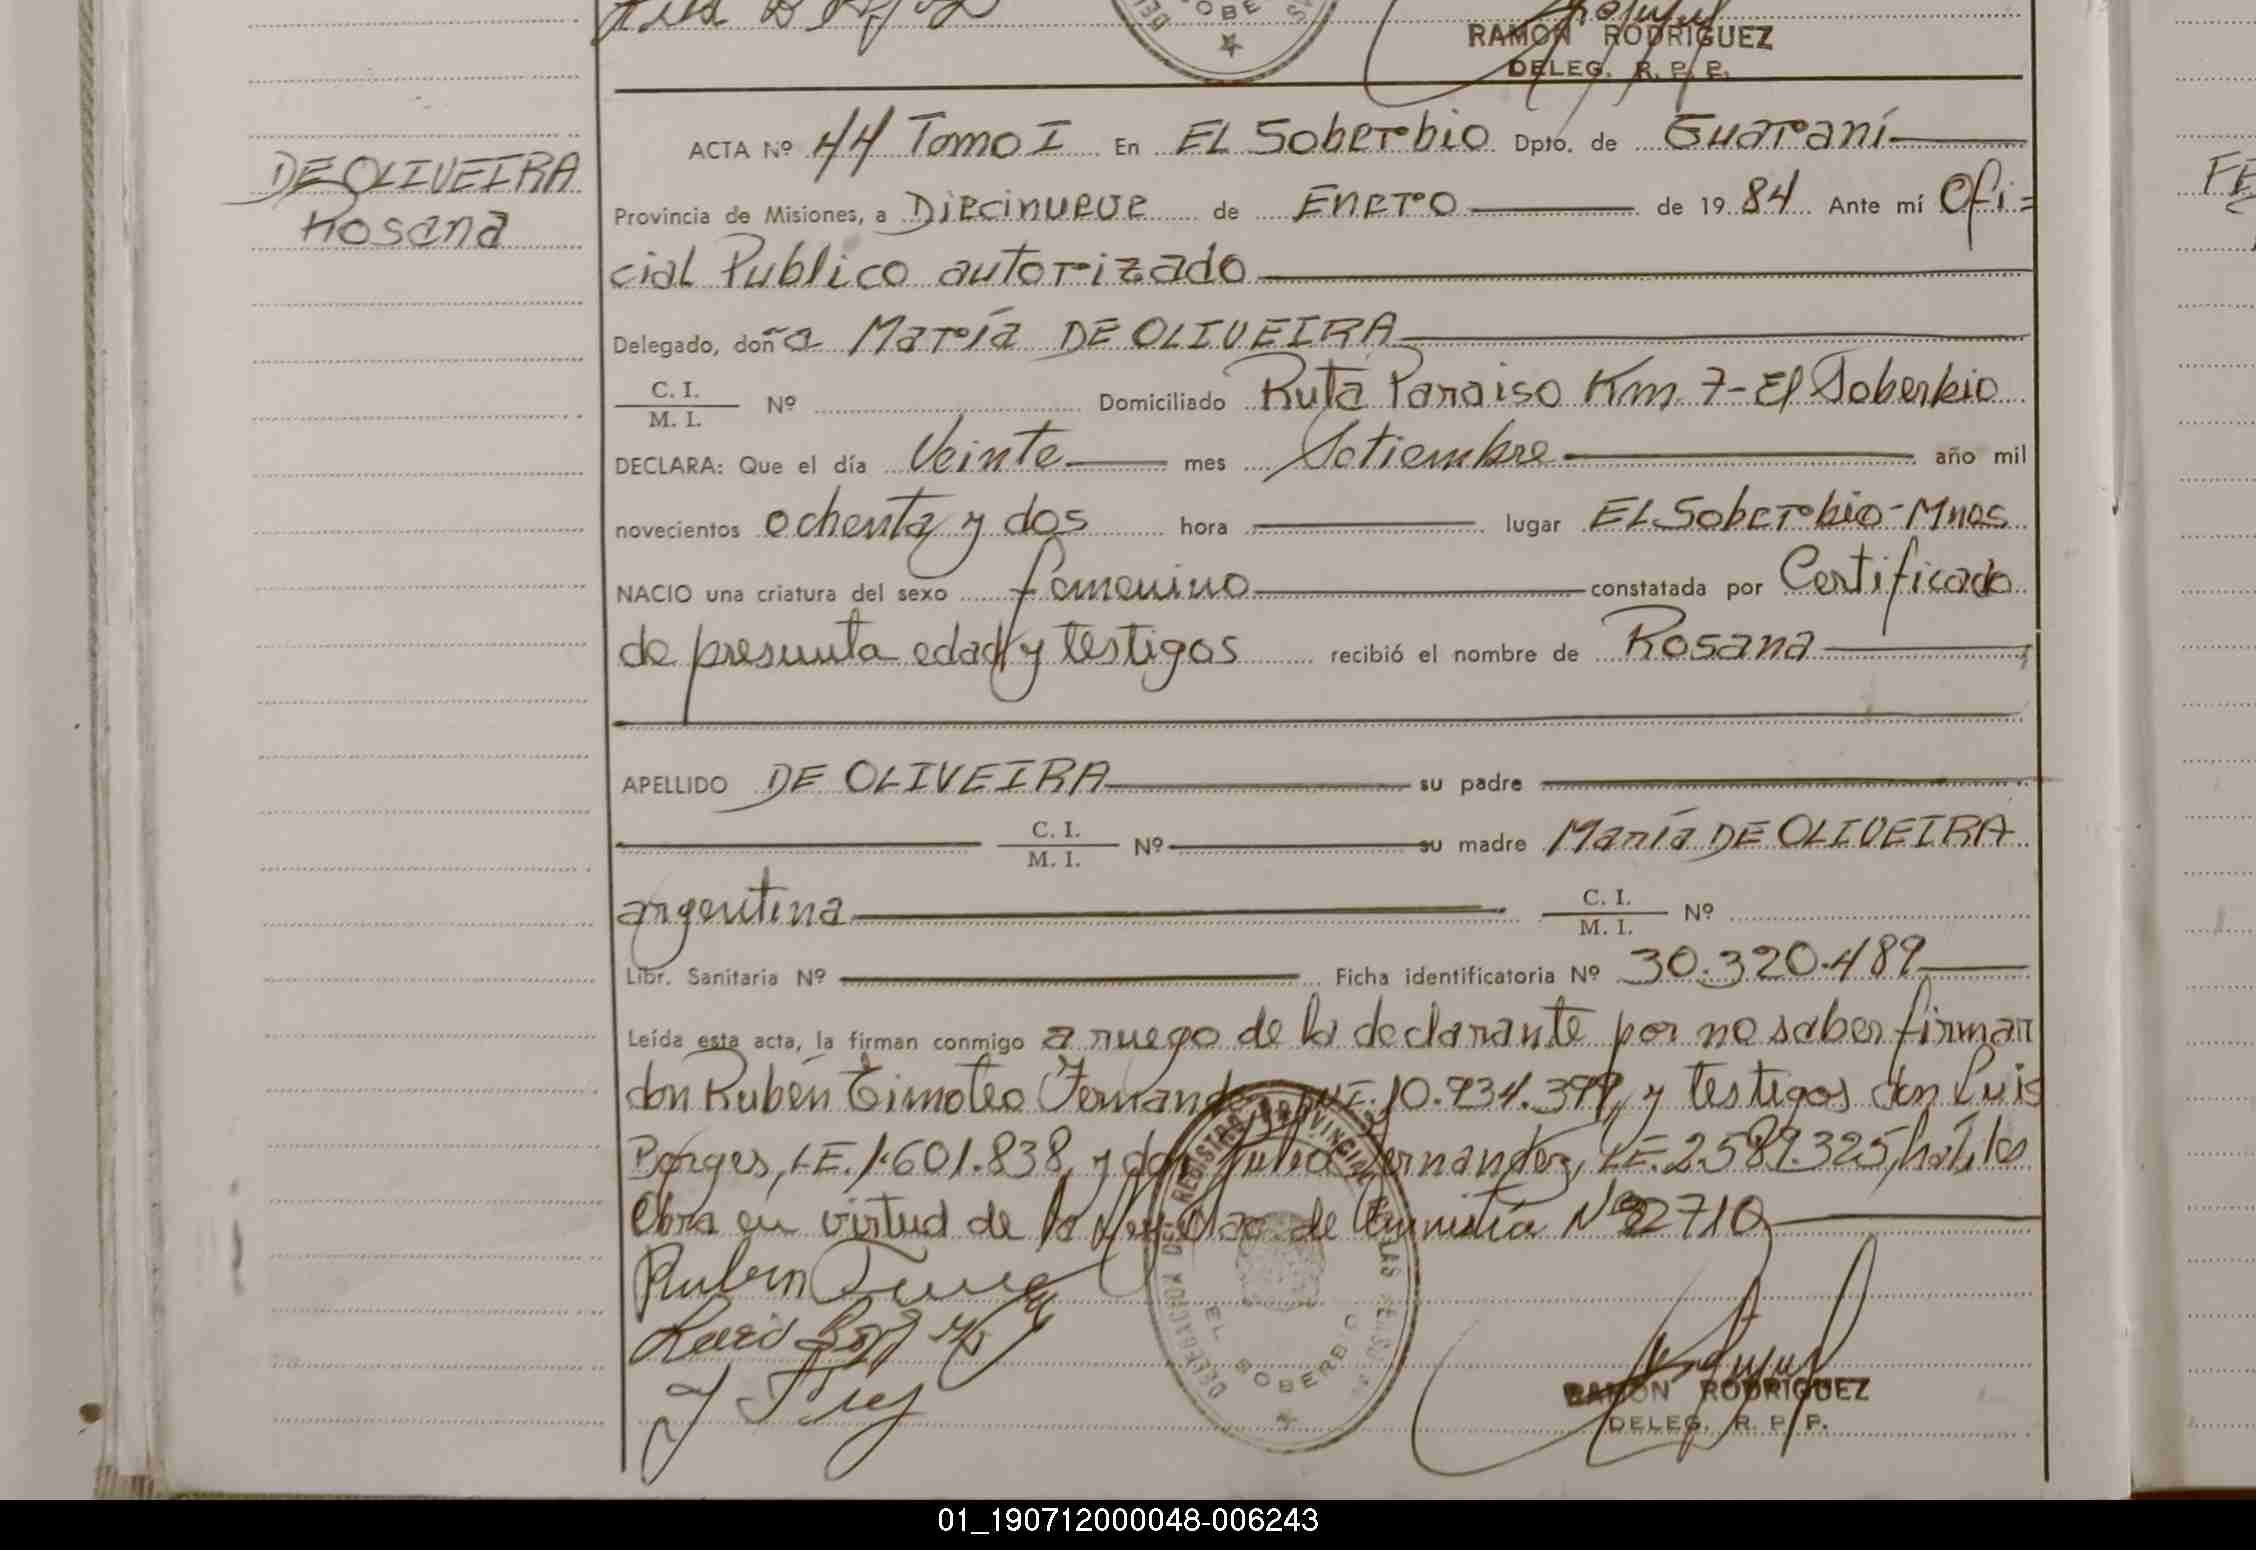 RAMON RODRIGUEZ
DELEG. R. P. P.
DE OLIVEIRA
Rosana
ACTA Nº 44 Tomo I En EL Soberbio Dpto. de Guaraní
Provincia de Misiones, a Diecinueve de Enero de 19 84 Ante mí Ofi=
cial Publico autorizado
Delegado, doña María DE OLIVEIRA
C. I.
M. I. Nº Domiciliado Ruta Paraiso Km 7-El Soberbio
DECLARA: Que el día Veinte mes Setiembre año mil
novecientos ochenta y dos hora lugar EL Soberbio-Mnes
NACIO una criatura del sexo femenino constatada por Certificado
de presunta edad y testigos recibió el nombre de Rosana
APELLIDO DE OLIVEIRA su padre
C. I.
M. I. Nº su madre María DE OLIVEIRA
argentina C. I.
M. I. Nº
Libr. Sanitaria Nº Ficha identificatoria Nº 30.320.489
Leída esta acta, la firman conmigo a ruego de la declarante por no saber firmar
don Rubén Timoteo 10.934.399, y testigos don Luis
Borges, LE. 1.601.838, y don Julio Fernandez, LE. 2.589.325, hábiles
Obra en virtud de la de Amnistía Nº 22710
Ruben
Luis
DELEGACION DEL REGISTRO PROVINCIAL DE LAS
EL SOBERBIO
RAMON RODRIGUEZ
DELEG. R. P. P.
FE
01_190712000048-006243